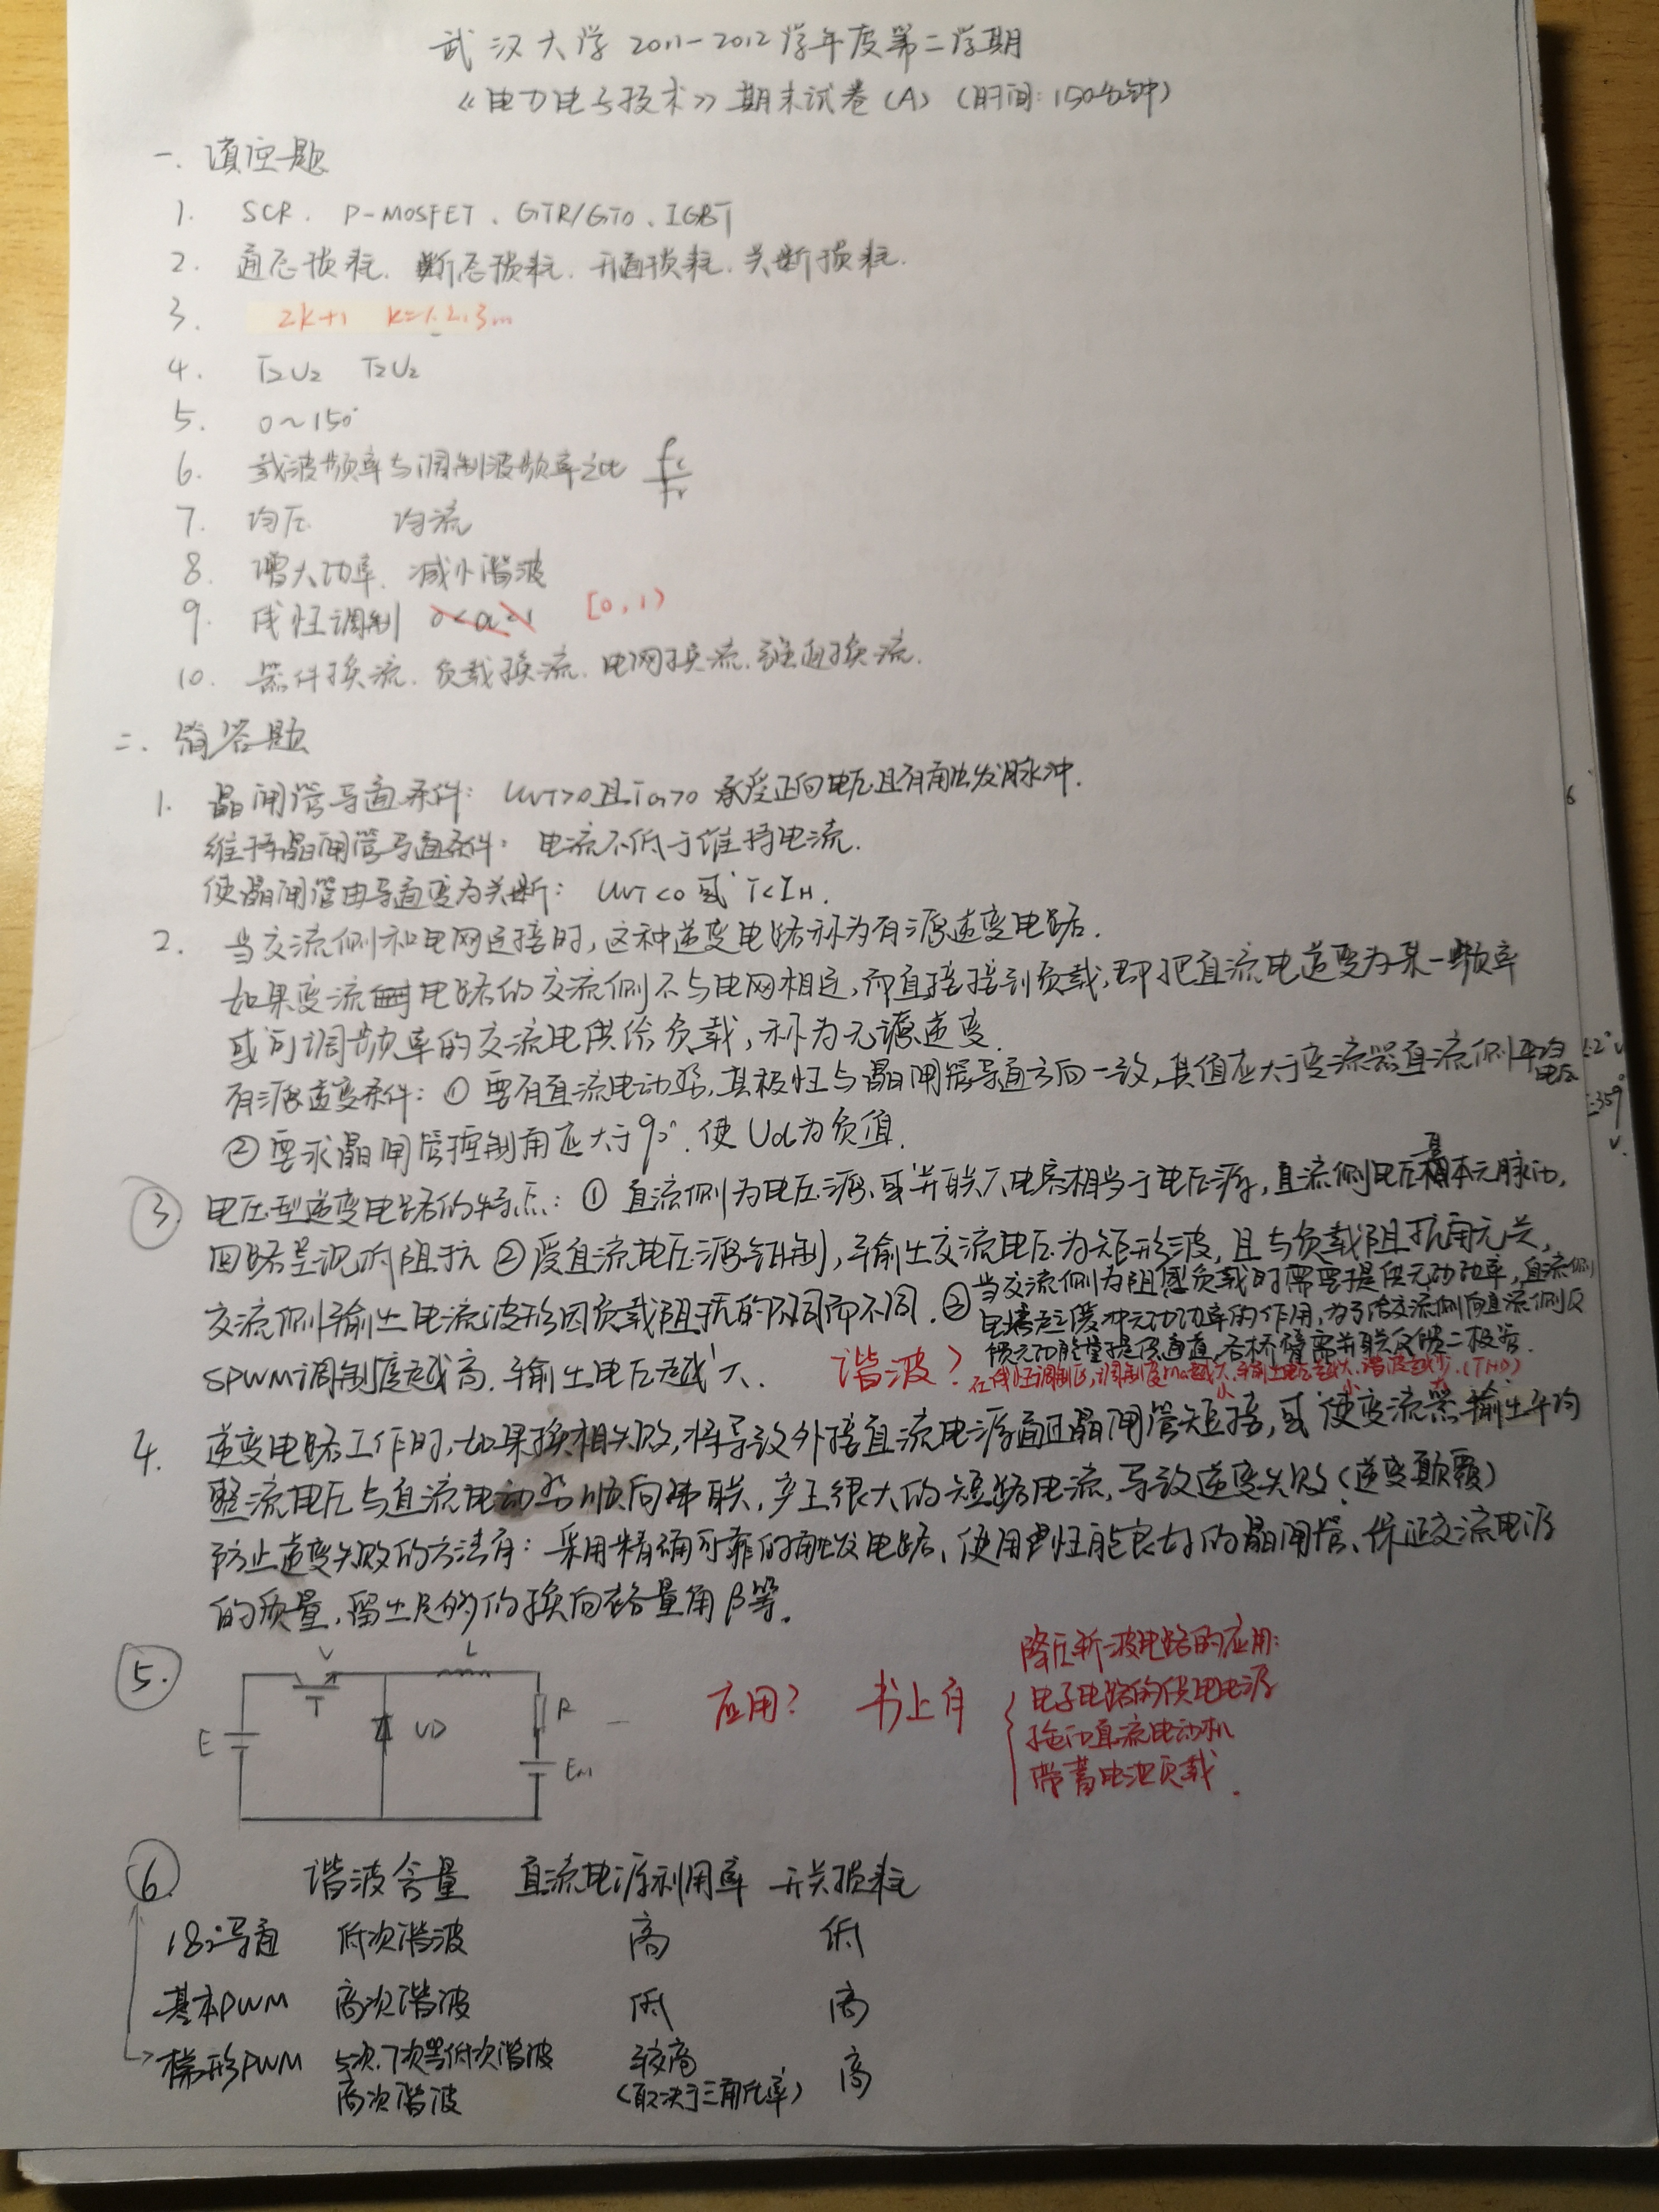 武汉大学2011-2012学年度第二学期
《电力电子技术》期末试卷(A) (时间:150分钟)
一. 填空题
1. SCR、P-MOSFET、GTR/GTO、IGBT
2. 通态损耗、断态损耗、开通损耗、关断损耗.
3. 2k+1 k=1.2.3...
4. T2U2 T2U2
5. 0~150°
6. 载波频率与调制波频率之比 fc/fr
7. 均压 均流
8. 增大功率、减小谐波
9. 线性调制 0<a<1 [0,1)
10. 器件换流、负载换流、电网换流、强迫换流.
二. 简答题
1. 晶闸管导通条件: UVT>0且iG>0 承受正向电压且有触发脉冲.
维持晶闸管导通条件: 电流不低于维持电流.
使晶闸管由导通变为关断: UVT<0或I<IH.
2. 当交流侧和电网连接时,这种逆变电路称为有源逆变电路.
如果变流电路的交流侧不与电网相连,而直接接到负载,即把直流电逆变为某一频率
或可调频率的交流电供给负载,称为无源逆变.
有源逆变条件:① 要有直流电动势,其极性与晶闸管导通方向一致,其值应大于变流器直流侧平均
电压
②要求晶闸管控制角应大于90°.使Ud为负值.
③ 电压型逆变电路的特点:① 直流侧为电压源,或并联大电容相当于电压源,直流侧电压基本无脉动,
回路呈现低阻抗 ②受直流电压源钳制,输出交流电压为矩形波,且与负载阻抗角无关,
交流侧输出电流波形因负载阻抗的不同而不同.③当交流侧为阻感负载时需要提供无功功率,直流侧
电容起缓冲无功功率的作用,为了给交流侧向直流侧反
馈无功能量提供通道,各桥臂需并联反馈二极管.
SPWM调制度越高,输出电压越大. 谐波?
在线性调制区,调制度ma越大,输出电压越大,谐波越少.(THD)
小 小 大
4. 逆变电路工作时,如果换相失败,将导致外接直流电源通过晶闸管短接,或使变流器输出平均
整流电压与直流电动势顺向串联,产生很大的短路电流,导致逆变失败(逆变颠覆)
防止逆变失败的方法有:采用精确可靠的触发电路、使用性能良好的晶闸管、保证交流电源
的质量,留出足够的换向裕量角β等.
⑤. V L
T
E VD R
Em
应用? 书上有
降压斩波电路的应用:
电子电路的供电电源
拖动直流电动机
带蓄电池负载.
⑥. 谐波含量 直流电源利用率 开关损耗
180°导通 低次谐波 高 低
基本PWM 高次谐波 低 高
梯形PWM 5次.7次等低次谐波 较高 高
高次谐波 (取决于三角化率)